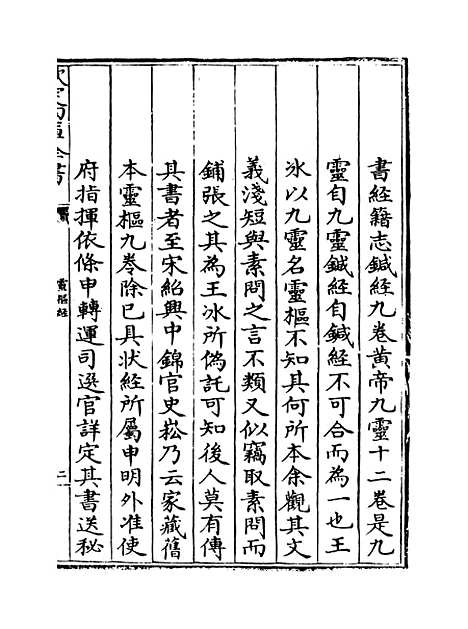 書經籍志鍼經九卷黃帝九靈十二卷是九
靈自九靈鍼經自鍼經不可合而為一也王
冰以九靈名靈樞不知其何所本余觀其文
義淺短與素問之言不類又似竊取素問而
鋪張之其為王冰所偽託可知後人莫有傳
其書者至宋紹興中錦官史崧乃云家藏舊
本靈樞九卷除已具狀經所屬申明外准使
府指揮依條申轉運司選官詳定其書送秘
靈樞經
二